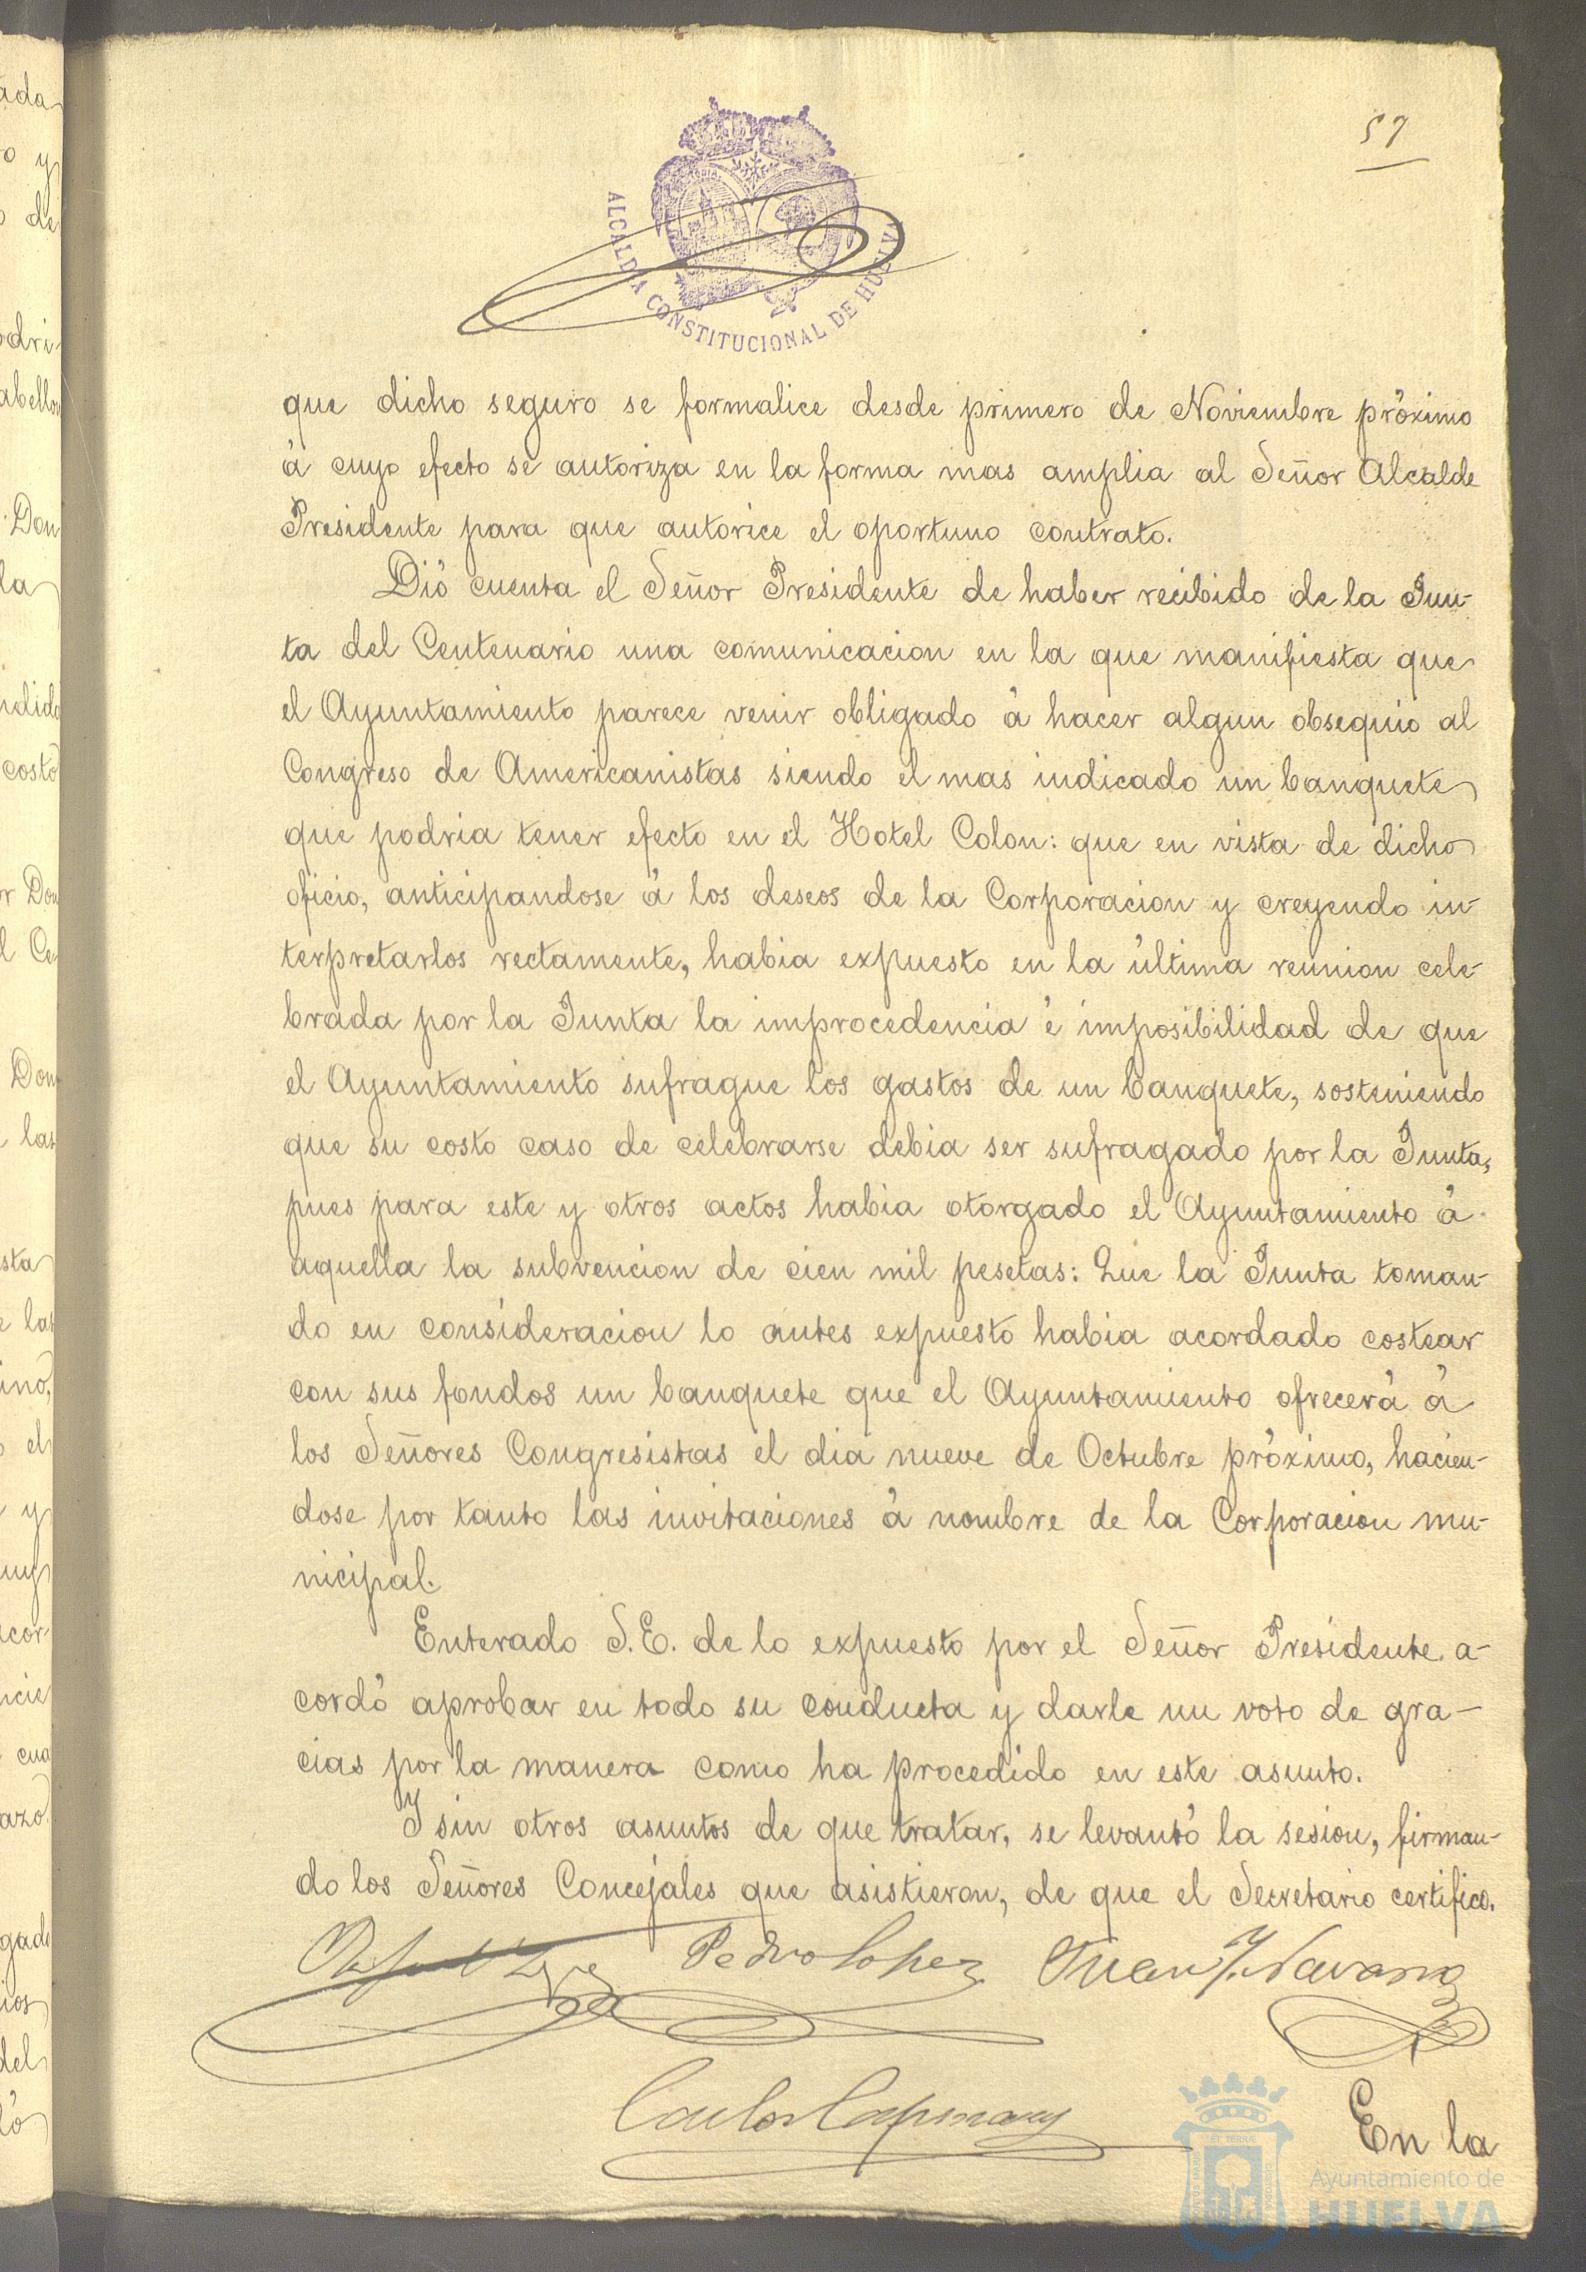 57
ALCALDIA CONSTITUCIONAL DE HUELVA
que dicho seguro se formalice desde primero de Noviembre próximo
á cuyo efecto se autoriza en la forma mas amplia al Señor Alcalde
Presidente para que autorice el oportuno contrato.
Dió cuenta el Señor Presidente de haber recibido de la Jun-
ta del Centenario una comunicacion en la que manifiesta que
el Ayuntamiento parece venir obligado á hacer algun obsequio al
Congreso de Americanistas siendo el mas indicado un banquete
que podria tener efecto en el Hotel Colon: que en vista de dicho
oficio, anticipandose á los deseos de la Corporacion y creyendo in-
terpretarlos rectamente, habia expuesto en la última reunion cele-
brada por la Junta la improcedencia é imposibilidad de que
el Ayuntamiento sufrague los gastos de un banquete, sosteniendo
que su costo caso de celebrarse debia ser sufragado por la Junta,
pues para este y otros actos habia otorgado el Ayuntamiento á
aquella la subvencion de cien mil pesetas: Que la Junta toman-
do en consideracion lo antes expuesto habia acordado costear
con sus fondos un banquete que el Ayuntamiento ofrecerá á
los Señores Congresistas el dia nueve de Octubre próximo, hacien-
dose por tanto las invitaciones á nombre de la Corporacion mu-
nicipal.
Enterado S.E. de lo expuesto por el Señor Presidente a-
cordó aprobar en todo su conducta y darle un voto de gra-
cias por la manera como ha procedido en este asunto.
Y sin otros asuntos de que tratar, se levantó la sesion, firman-
do los Señores Concejales que asistieron, de que el Secretario certifico.
Pedro Lopez Juan J. Navarro
Carlos
En la
Ayuntamiento de
HUELVA